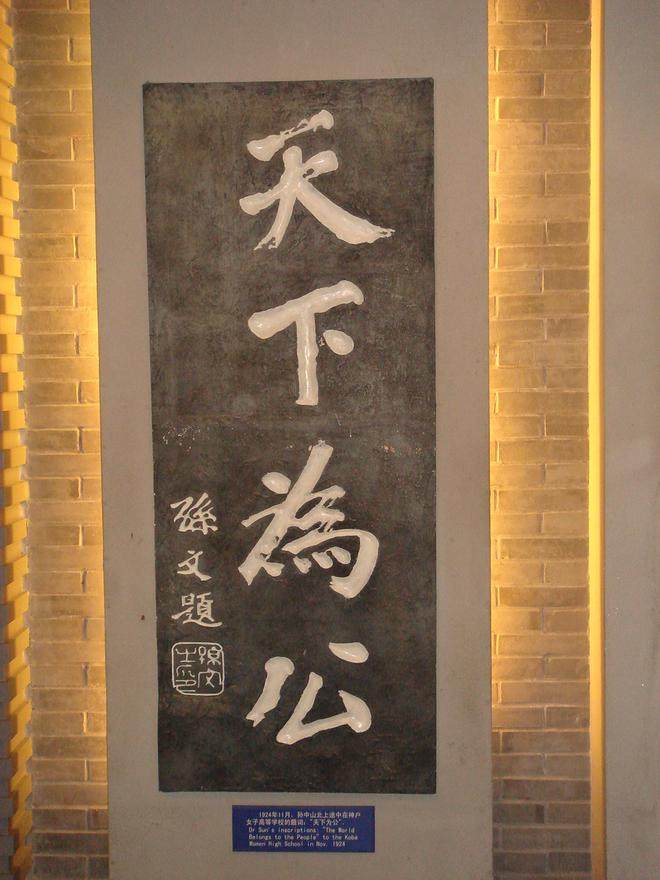 天下為公
孫文題
孫文之印
1924年11月，孙中山北上途中在神户
女子高等学校的题词：“天下为公”.
Dr Sun's inscriptions: "The World
Belongs to the People" to the Kobe
Women High School in Nov. 1924